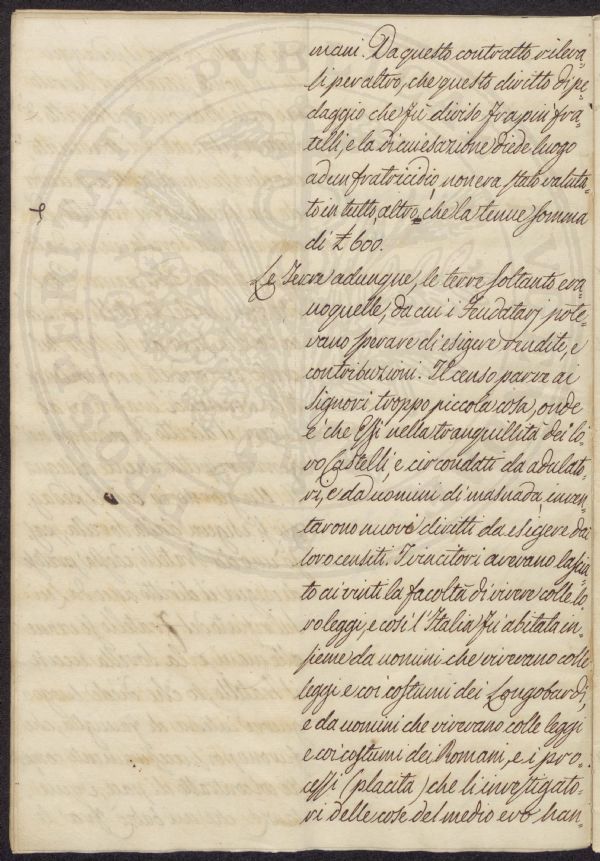 mani. Da questo contratto rileva-
si peraltro, che questo diritto di pe-
daggio che fu diviso fra più fra-
telli, e la di cui esazione diede luogo
ad un fratricidio, non era stato valuta-
to in tutto altro, che la tenue somma
di £ 600.
Le Terre adunque, le terre soltanto era-
no quelle, da cui i Feudatarj pote-
vano sperare di esigere rendite, e
contribuzioni. Il censo parve ai
Signori troppo piccola cosa, onde
è che Essi nella tranquillità dei lo-
ro Castelli, e circondati da adulato-
ri, e da uomini di masnada, inven-
tarono nuovi diritti da esigere dai
loro censiti. I vincitori avevano lascia-
to ai vinti la facoltà di vivere colle lo-
ro leggi, e così l'Italia fu abitata in-
sieme da uomini che vivevano colle
leggi e coi costumi dei Longobardi,
e da uomini che vivevano colle leggi
e coi costumi dei Romani, e i pro-
cessi (placita) che li investigato-
ri delle cose del medio evo han-